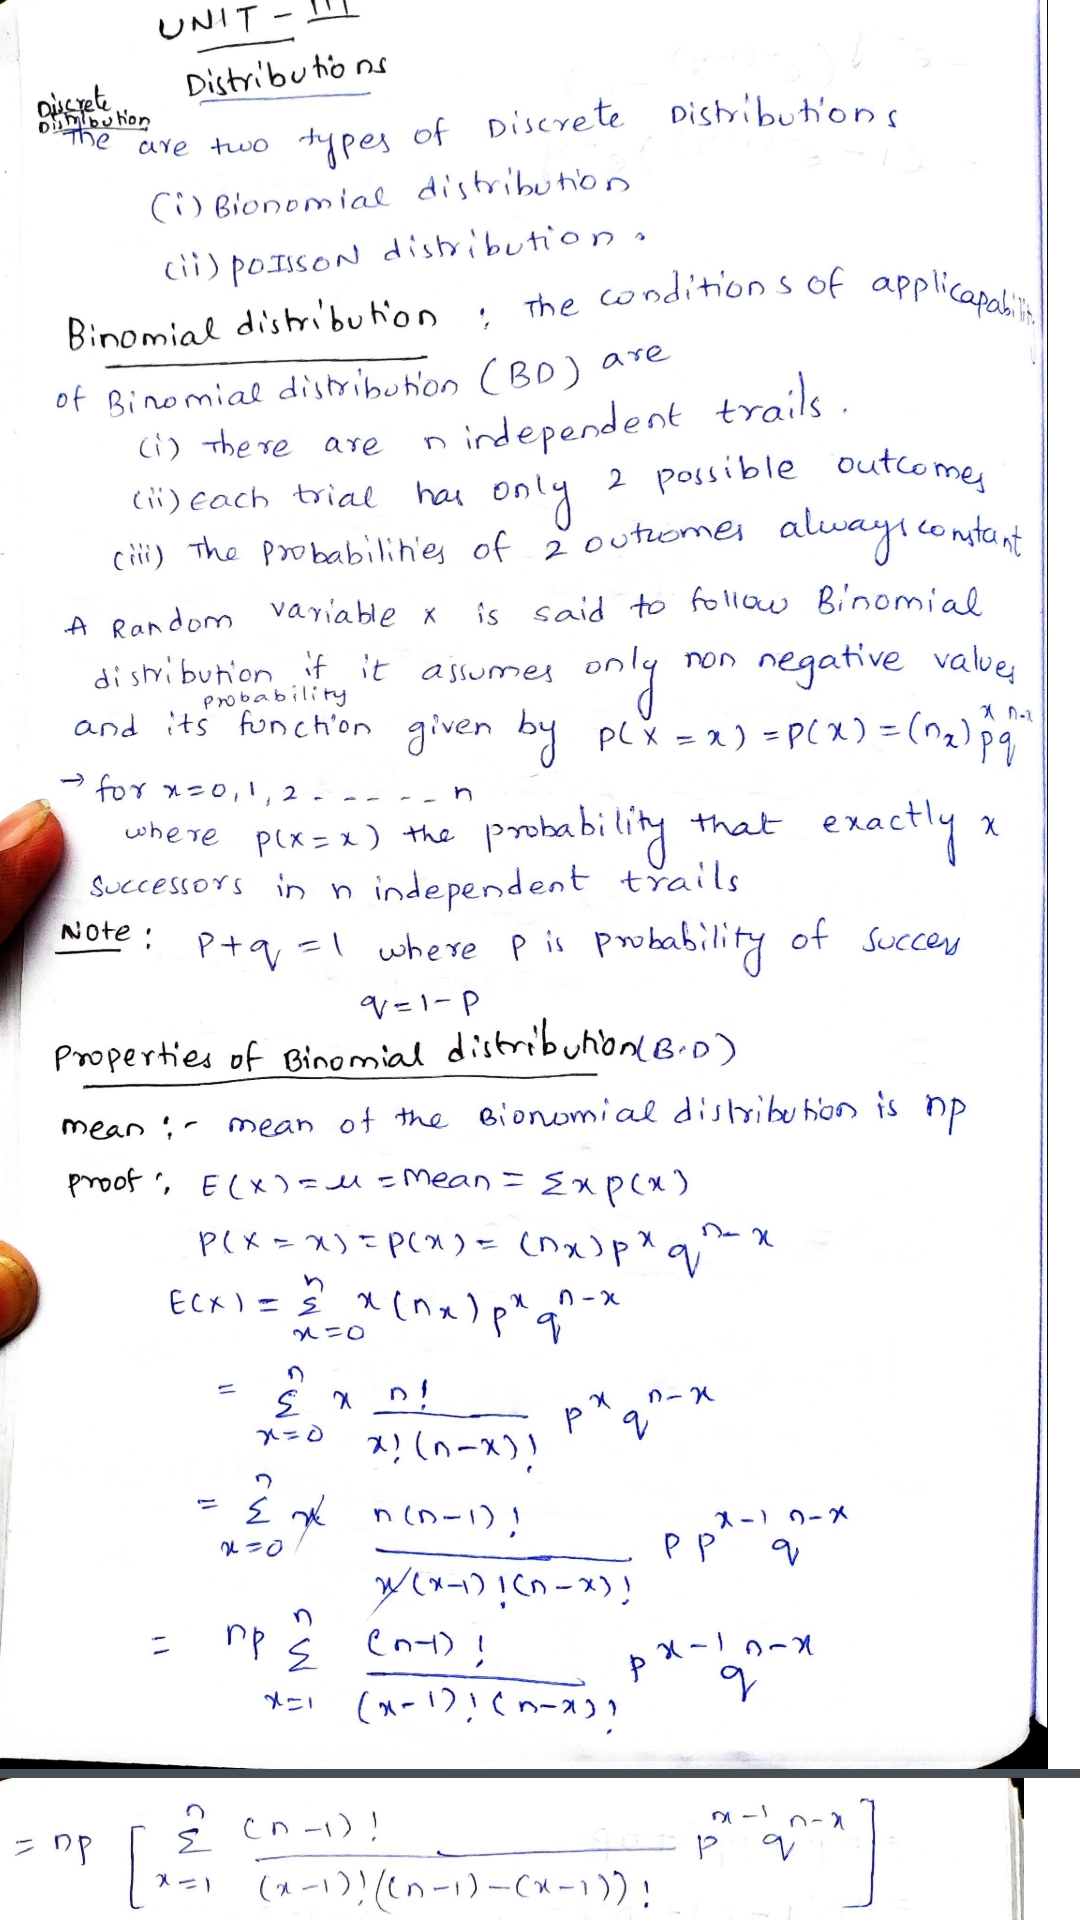 UNIT - III
Distributions
Discrete
Distribution
The are two types of Discrete Distributions
(i) Bionomial distribution
(ii) POISSON distribution.
Binomial distribution : The conditions of applicapability
of Binomial distribution (BD) are
(i) There are n independent trails.
(ii) each trial has only 2 possible outcomes
(iii) The probabilities of 2 outcomes always constant
A Random variable x is said to follow Binomial
distribution if it assumes only non negative values
probability
and its function given by P(X = x) = P(x) = (nₓ) pˣ qⁿ⁻ˣ
→ for x=0,1,2------n
where P(x=x) the probability that exactly x
successors in n independent trails
Note: P+q = 1 where P is probability of success
q = 1-P
Properties of Binomial distribution(B.D)
mean :- mean of the Bionomial distribution is np
proof : E(x) = μ = Mean = Σx p(x)
P(X = x) = P(x) = (nₓ) pˣ qⁿ⁻ˣ
E(x) = Σₓ₌₀ⁿ x (nₓ) pˣ qⁿ⁻ˣ
= Σₓ₌₀ⁿ x n! / x!(n-x)! pˣ qⁿ⁻ˣ
= Σₓ₌₀ⁿ x n(n-1)! / x(x-1)!(n-x)! p pˣ⁻¹ qⁿ⁻ˣ
= np Σₓ₌₁ⁿ (n-1)! / (x-1)!(n-x)! pˣ⁻¹ qⁿ⁻ˣ
= np [ Σₓ₌₁ⁿ (n-1)! / (x-1)!((n-1)-(x-1))! pˣ⁻¹ qⁿ⁻ˣ ]